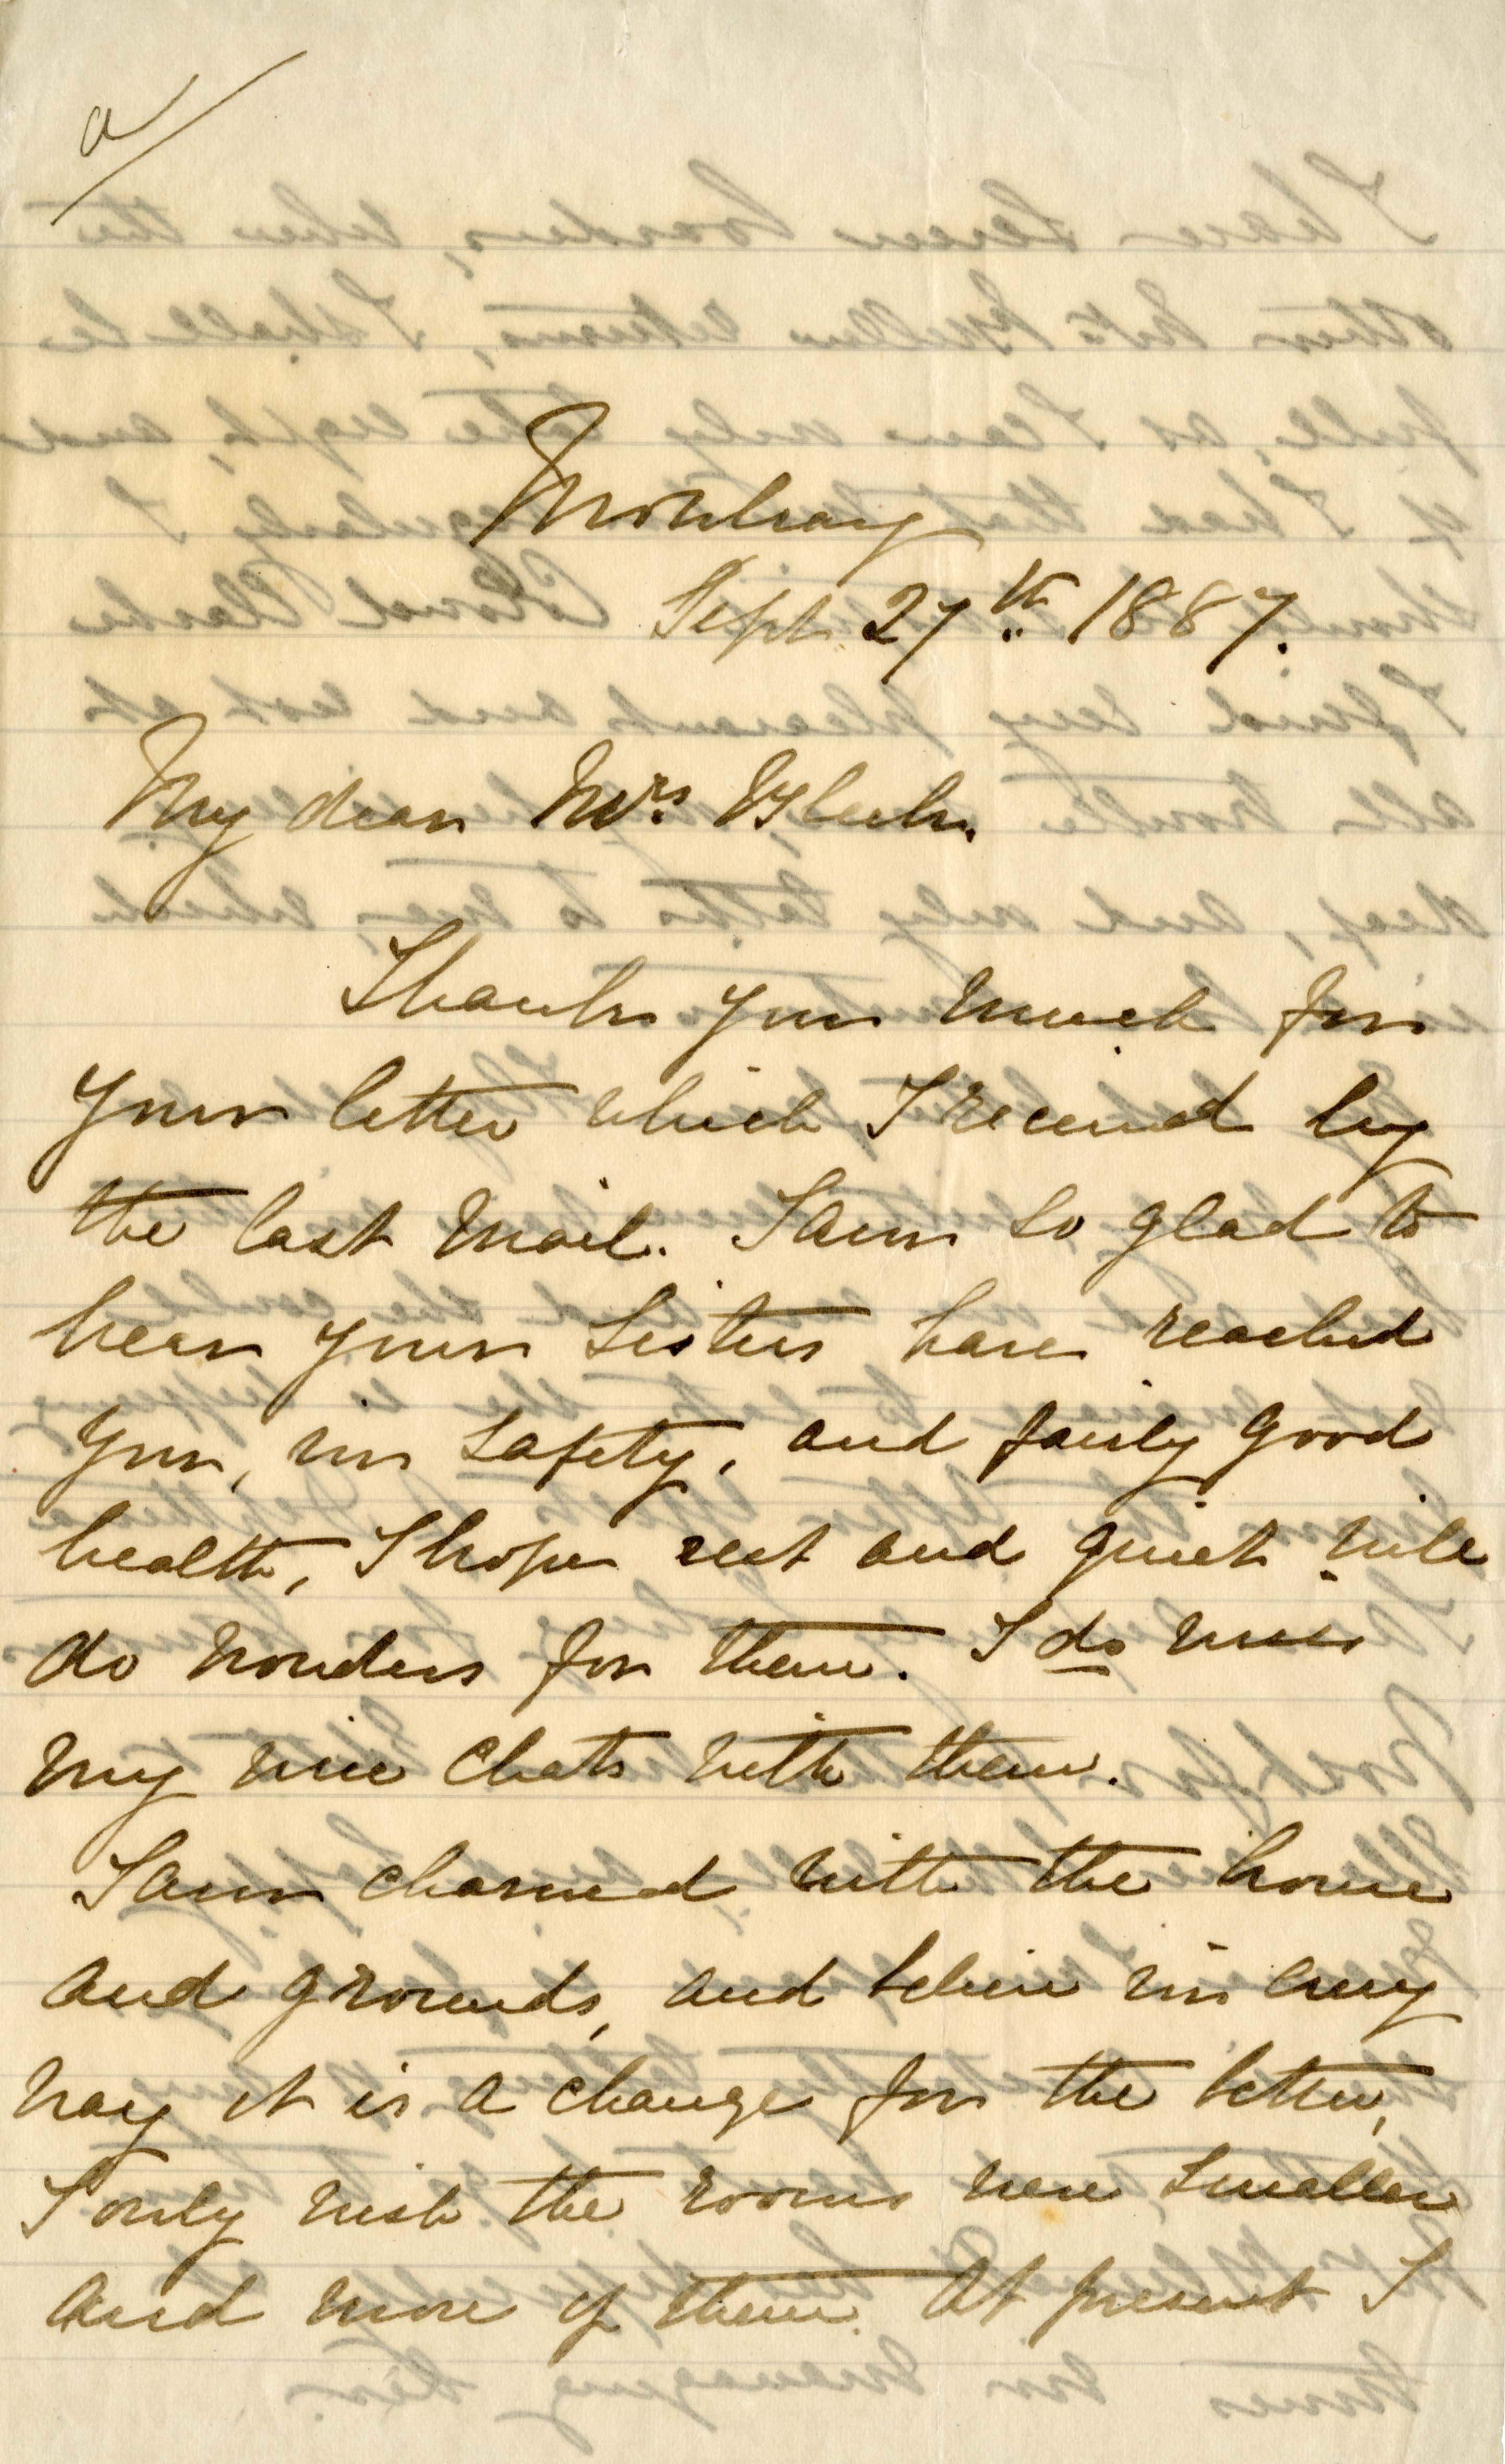 a/
Mowbray
Sept 27th 1887.
My dear Mrs
Thanks you much for
your letter which I received by
the last mail. I am so glad to
hear your sisters have reached
you, in safety, and fairly good
health, I hope rest and quiet will
do wonders for them. I do miss
my nice chats with them.
I am charmed with the house
and grounds, and believe in every
way it is a change for the better,
I only wish the rooms were smaller
and more of them. At present I